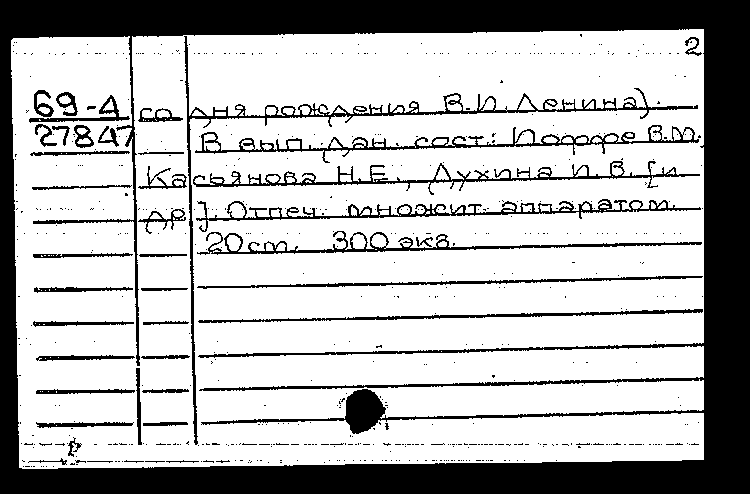 2
69-4 со дня рождения В.И. Ленина).
27847 В вып. дан. сост.: Иоффе В.М.,
Касьянова Н.Е., Духина И.В. [и
др]. Отпеч. множит. аппаратом.
20 cm. 300 экз.